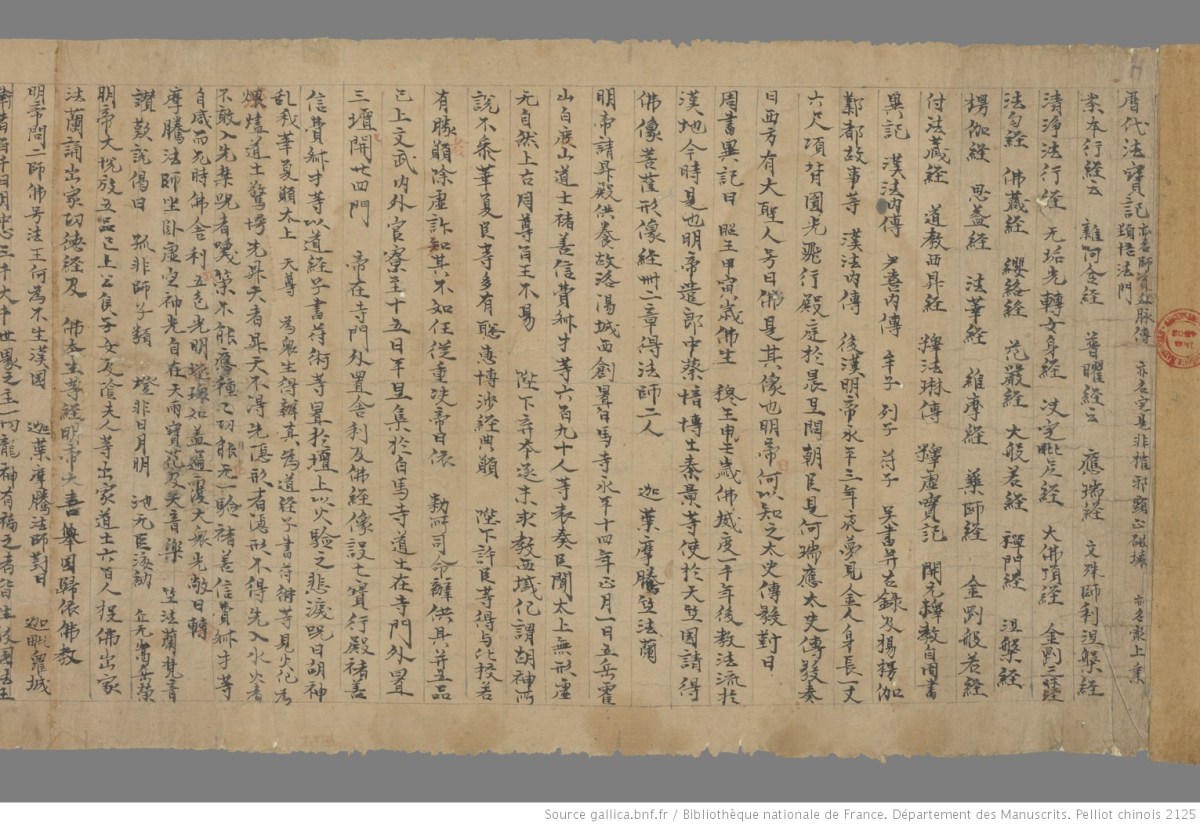 曆代法寶記 亦名師資血脉傳 亦名定是非摧邪顯正破壞 亦名最上乘
頓悟法門
案本行經云 雜阿含經 普曜經云 應瑞經 文殊師利涅槃經
清淨法行經 无垢光轉女身經 决定毗尼經 大佛頂經 金剛三昧經
法句經 佛藏經 纓絡經 花嚴經 大般若經 禪門經 涅槃經
楞伽經 思益經 法華經 維摩經 藥師經 金剛般若經
付法藏經 道教西昇經 釋法琳傳 釋虛實記 開元釋教目 周書
異記 漢法內傳 尹喜內傳 牟子 列子 苻子 吳書 并古錄及揚楞伽
鄴都故事等 漢法內傳 後漢明帝永平三年夜夢見金人身長一丈
六尺項背圓光飛行殿庭於晨旦問朝臣是何瑞應太史傅毅奏
曰西方有大聖人号曰佛是其像也明帝何以知之太史傅毅對曰
周書異記曰 昭王甲寅歲佛生 穆王申歲佛滅度一千年後教法流於
漢地今時是也明帝遣郎中蔡愔博士秦景等使於天竺國請得
佛像菩薩形像經卌二章得法師二人 迦葉摩騰竺法蘭
明帝請昇殿供養故洛湯城西創置白馬寺永平十四年正月一日五岳霍
山白鹿山道士褚善信費叔才等六百九十人等表奏臣聞太上無形虛
无自然上古同尊百王不易 陛下弃本逐末求教西域化謂胡神所
說不叅華夏臣等多有聰惠博涉經典願 陛下許臣等得与比挍若
有勝願除虛詐如其不如任從重决帝曰依 勑所司命辦供具并五品
已上文武內外官寮至十五日平旦集於白馬寺道士在寺門外置
三壇開廿四門 帝在寺門外置舍利及佛經像設七寶行殿褚善
信費叔才等以道經子書符術等置於壇上以火驗之悲淚呪曰胡神
乱我華夏願太上 天尊 為衆生得辦真偽道經子書符術等見火化為
煨燼道士驚愕先昇天者昇天不得先隱形者隱形不得先入水火者
不敢入先禁呪者喚策不能應種々功能无一驗褚善信費叔才等
自感而死時佛舍利五色光明璨環如盖遍覆大衆光敝日轉
摩騰法師坐卧虛空神光自在天雨寶花及天音樂 竺法蘭梵音
讚歎說偈曰 狐非師子類 燈非日月明 池无巨海納 丘无嵩岳榮
明帝大悅放五品已上公侯子女及陰夫人等出家道士六百人投佛出家
法蘭誦出家功德經及 佛本生等經明帝大喜舉國歸依佛教
明帝問二師佛号法王何為不生漢國 迦葉摩騰法師對曰 迦毗羅城